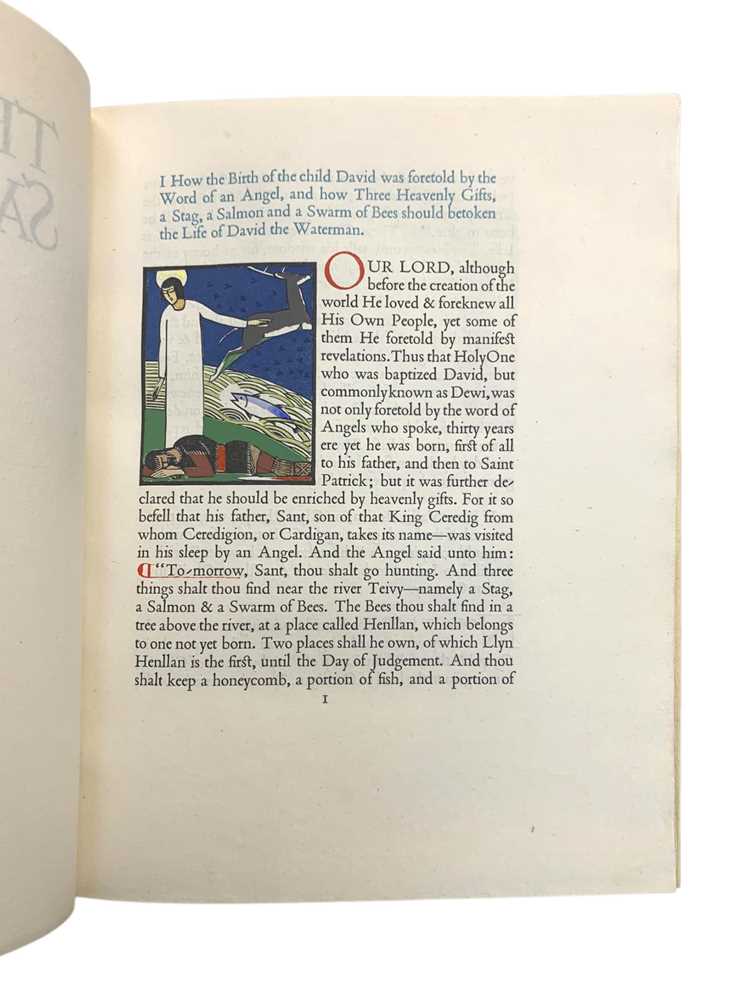 TH
SA
I How the Birth of the child David was foretold by the
Word of an Angel, and how Three Heavenly Gifts,
a Stag, a Salmon and a Swarm of Bees should betoken
the Life of David the Waterman.
OUR LORD, although
before the creation of the
world He loved & foreknew all
His Own People, yet some of
them He foretold by manifest
revelations. Thus that Holy One
who was baptized David, but
commonly known as Dewi, was
not only foretold by the word of
Angels who spoke, thirty years
ere yet he was born, first of all
to his father, and then to Saint
Patrick; but it was further de-
clared that he should be enriched by heavenly gifts. For it so
befell that his father, Sant, son of that King Ceredig from
whom Ceredigion, or Cardigan, takes its name—was visited
in his sleep by an Angel. And the Angel said unto him:
¶“To-morrow, Sant, thou shalt go hunting. And three
things shalt thou find near the river Teivy—namely a Stag,
a Salmon & a Swarm of Bees. The Bees thou shalt find in a
tree above the river, at a place called Henllan, which belongs
to one not yet born. Two places shall he own, of which Llyn
Henllan is the first, until the Day of Judgement. And thou
shalt keep a honeycomb, a portion of fish, and a portion of
I